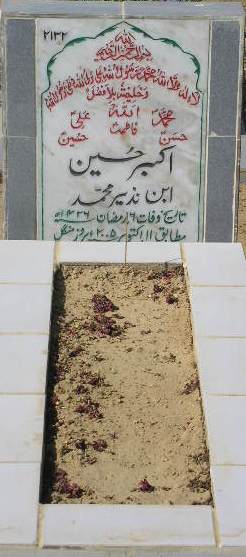 ۲۱۳۲
الله
بسم الله الرحمن الرحیم
لا اله الا الله محمد رسول الله علی ولی الله وصی رسول الله
وخلیفتہ بلا فصل
محمدؐ اللہ علیؑ
حسنؑ فاطمہؑ حسینؑ
اکبر حسین
ابن نذیر محمد
تاریخ وفات ۶ رمضان ۱۴۲۶ھ
مطابق ۱۱ اکتوبر ۲۰۰۵ بروز منگل